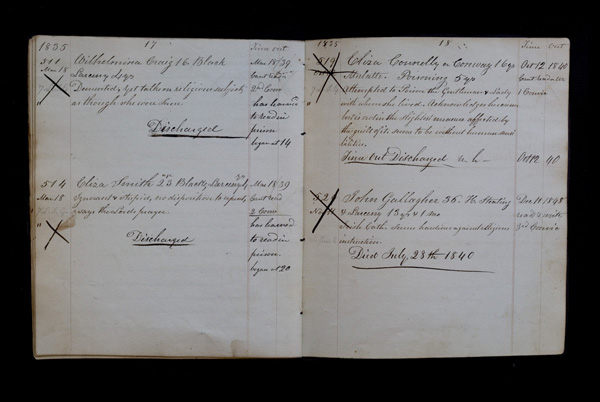 1835 17 Time out
511 Wilhelmina Craig 16 Black Mar 18 '39
Mar 18 Larceny 4 yrs
Demented, yet talks on religious subjects 2nd Conv
as though she were sane. has learned
to read in
Discharged prison
began at 14
514 Eliza Smith 23 Black, Larceny Mar 18 '39
Mar 18 Ignorant & stupid, no disposition to repent,
says the Lords prayer. 2 Conv
has learned
Discharged to read in
prison
began at 20
1835 18 Time out
519 Eliza Connelly or Conway 16 yrs Oct 12 1840
Mulatto Poisoning 5 yrs
attempted to Poison the Gentleman & Lady 1 Convic
with whom she lived. Acknowledges her crime
but is not in the slightest manner affected by
the guilt of it seems to be without human
Time out Discharged Oct 12 40
John Gallagher 35 Stealing Dec 11 1848
& Larceny 13 yrs & 1 mo read & write
Irish Cath. seems hardened against religious 3rd Convic
instruction
Died July 28th 1840